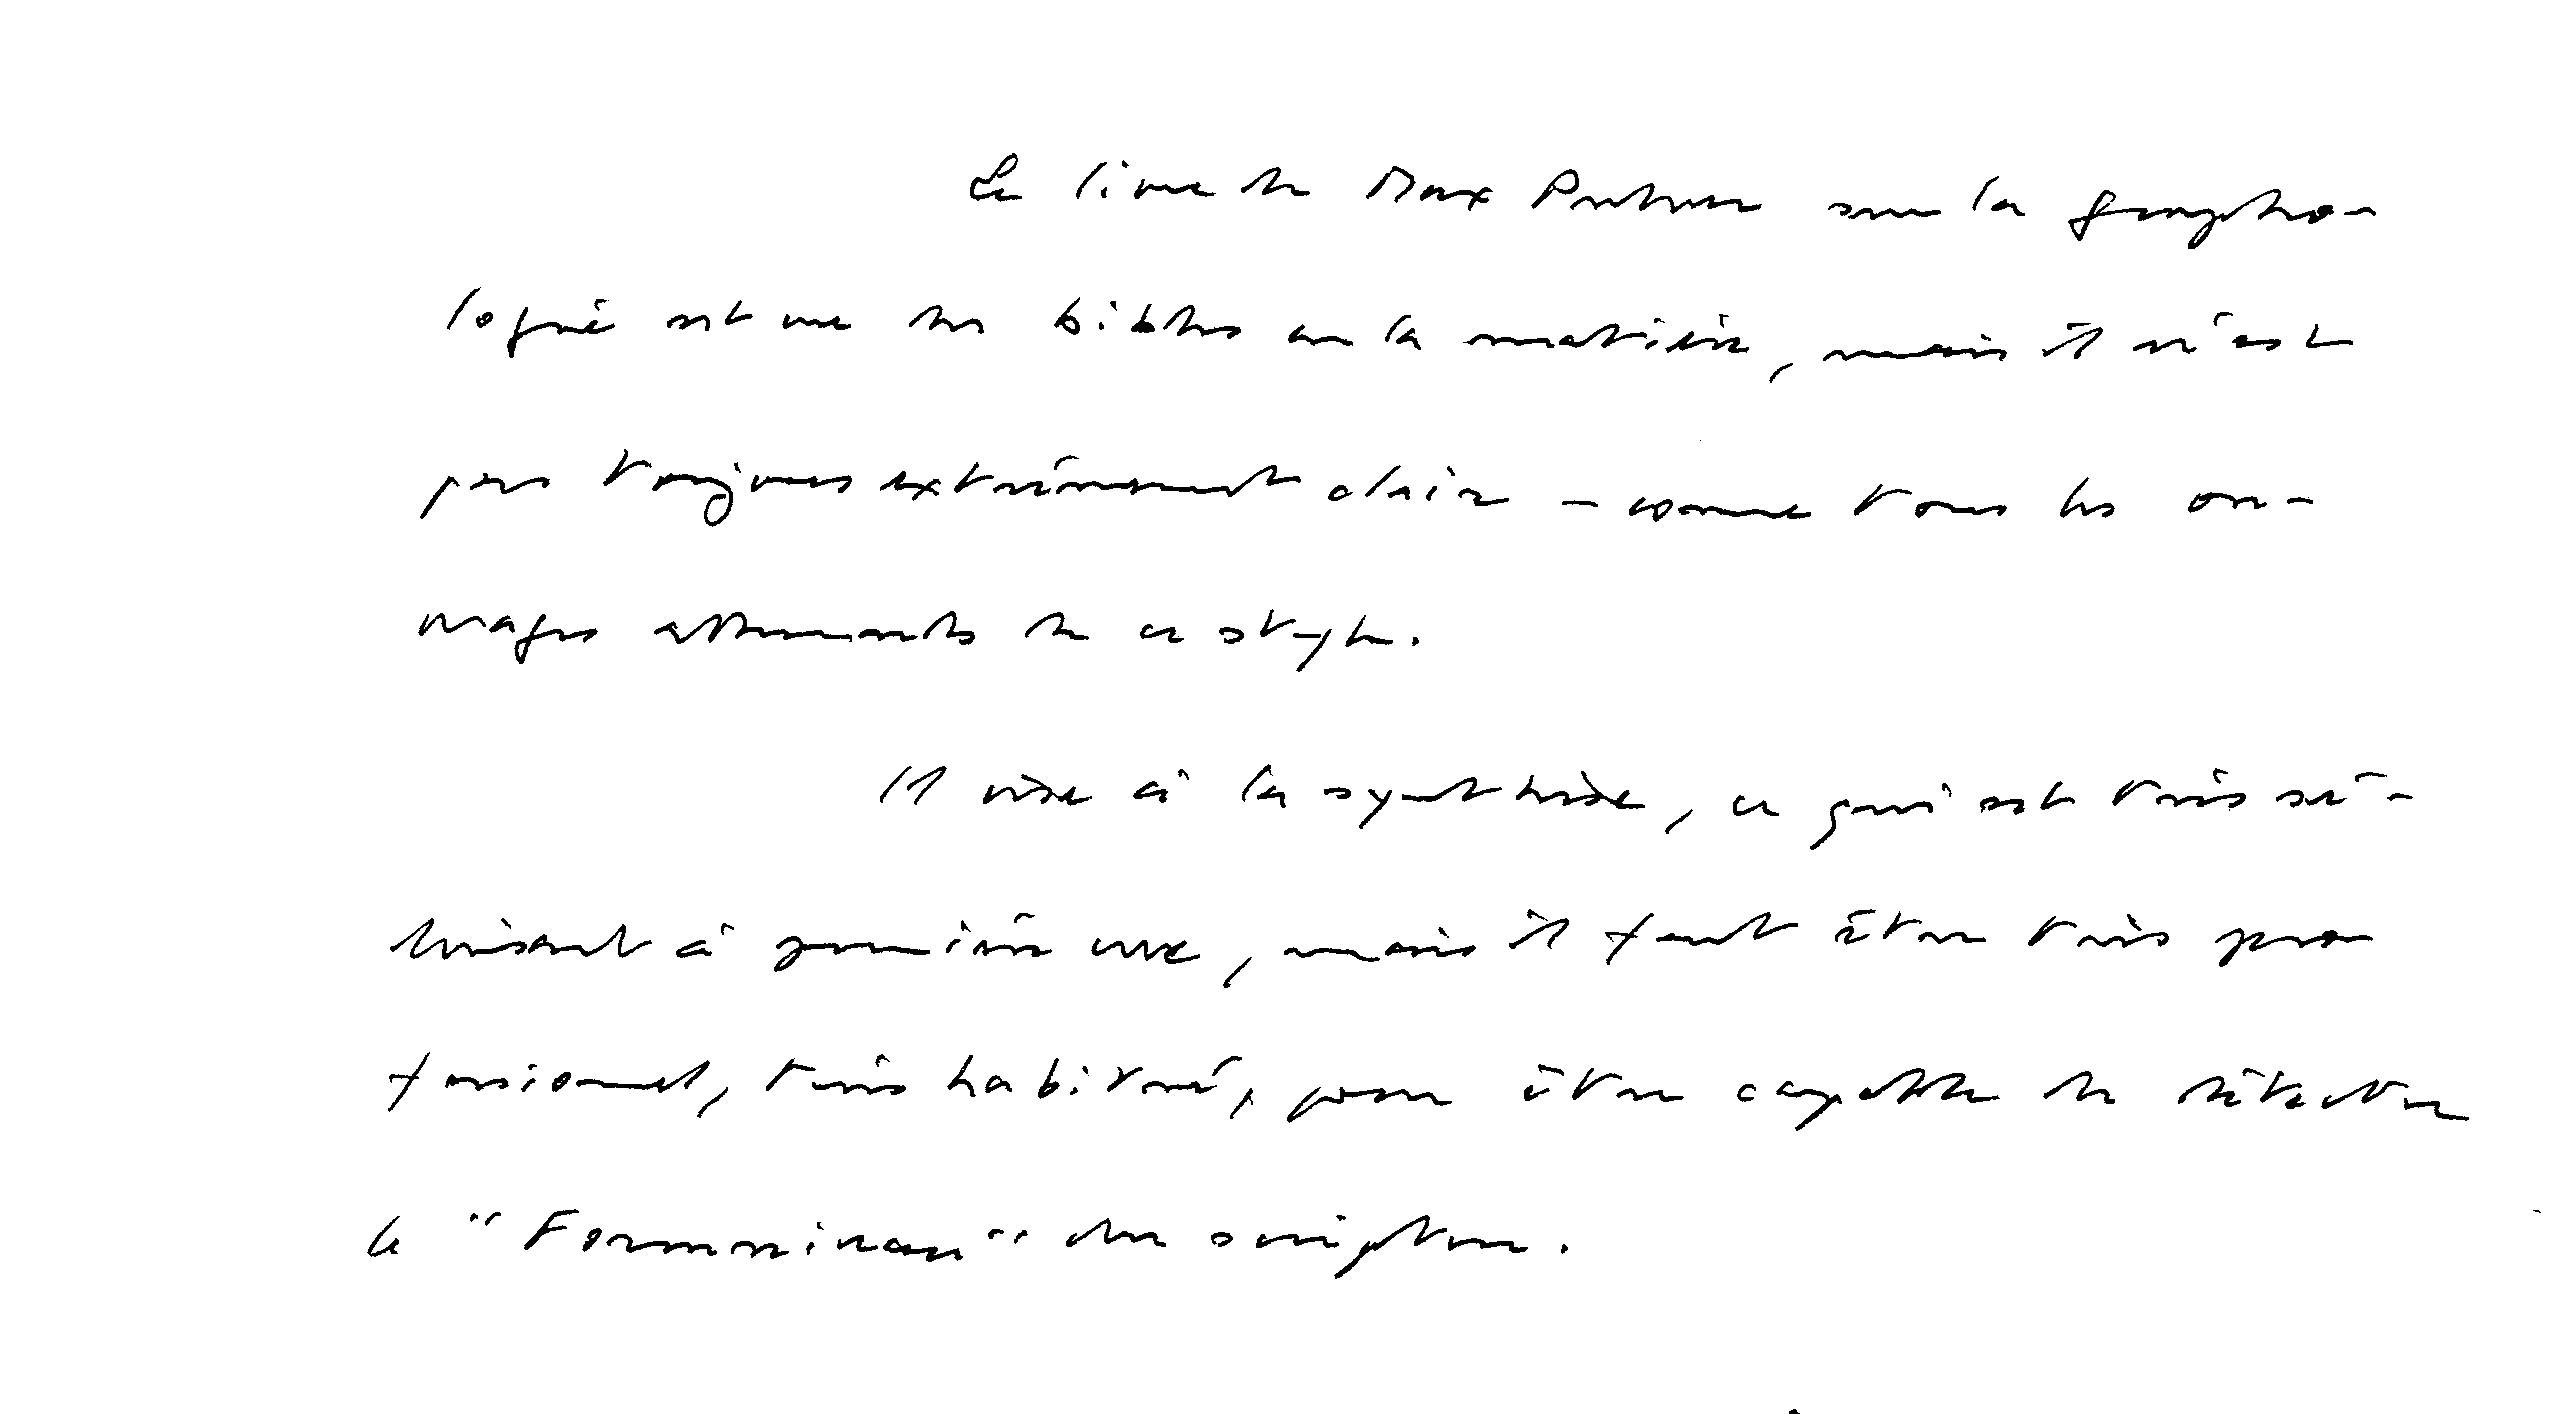 Le livre de Max Pulver sur la grapho-
logie est une des bibles en la matière, mais il n'est
pas toujours extrêmement clair - comme tous les ou-
vrages allemands de ce style.
Il vise à la synthèse, ce qui est très sé-
duisant à première vue, mais il faut être très pro
fessionnel, très habitué, pour être capable de détecter
le "Formniveau" du scripteur.